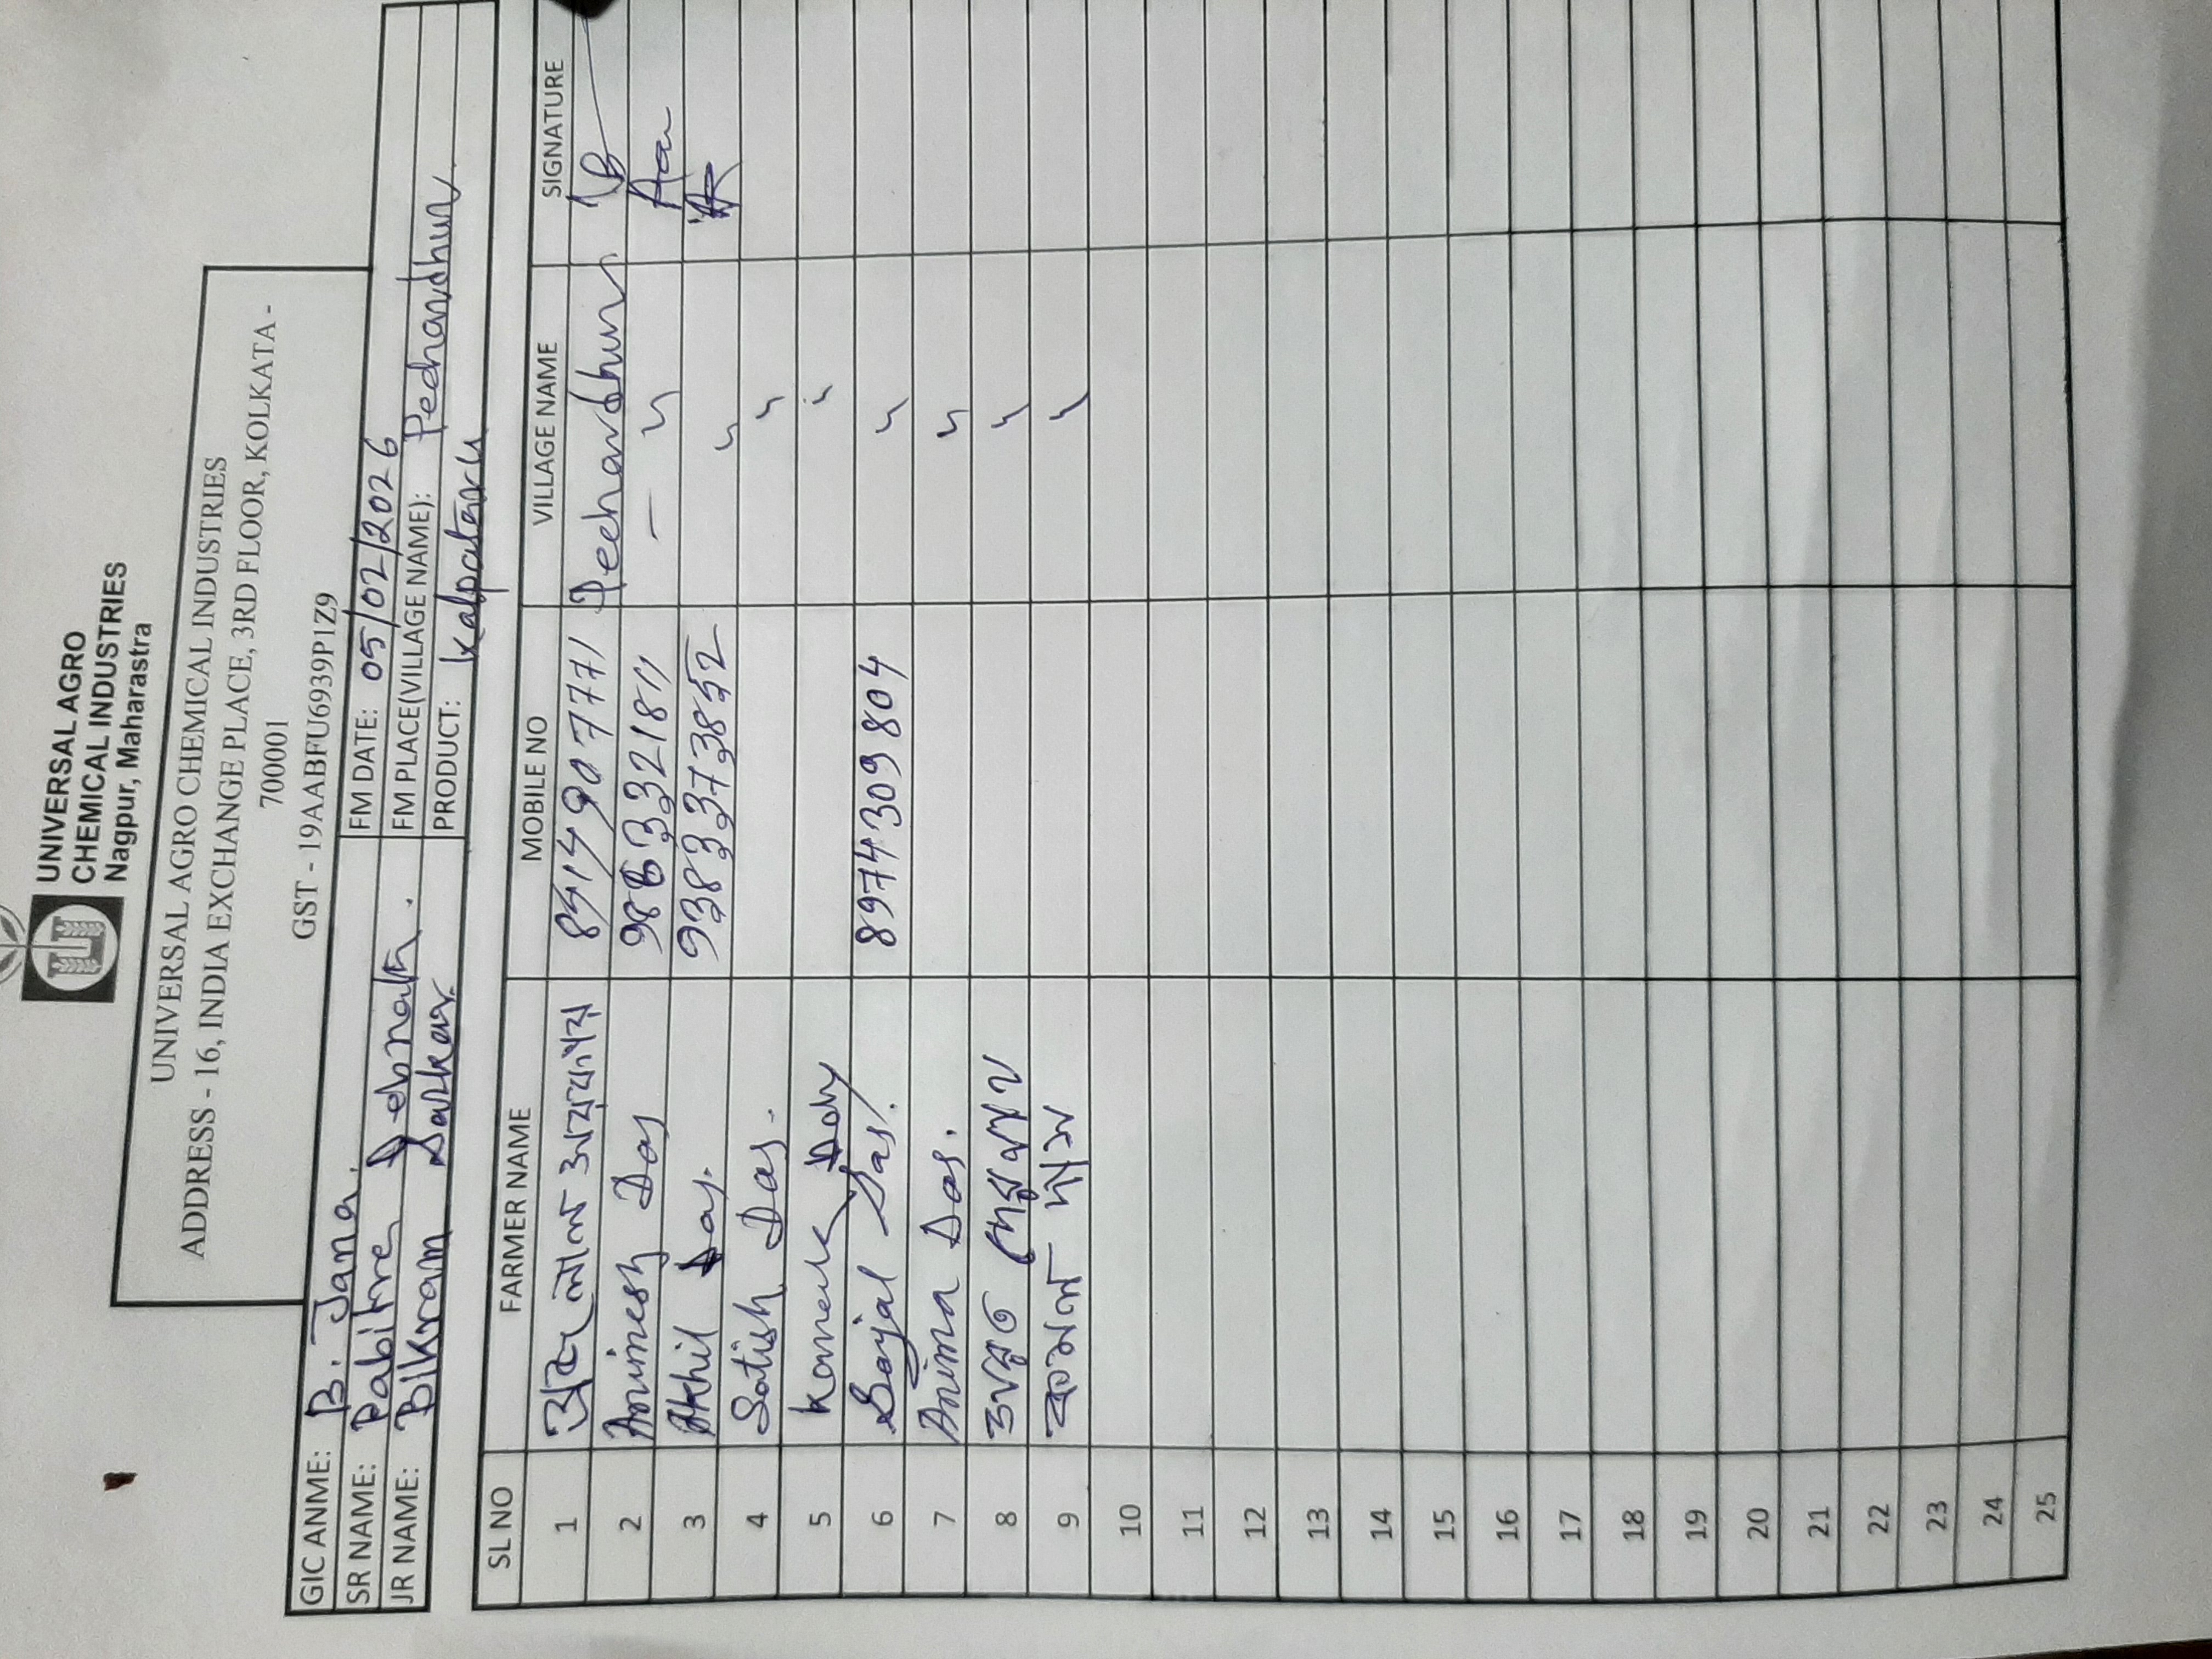 UNIVERSAL AGRO
CHEMICAL INDUSTRIES
Nagpur, Maharastra
UNIVERSAL AGRO CHEMICAL INDUSTRIES
ADDRESS - 16, INDIA EXCHANGE PLACE, 3RD FLOOR, KOLKATA -
700001
GST - 19AABFU6939P1Z9
GIC ANME: B. Jana.
SR NAME: Pabitra Debnath. FM DATE: 05/02/2026
JR NAME: BIkram Sarkar FM PLACE(VILLAGE NAME): Pechardhur
PRODUCT: Kalpataru
SL NO FARMER NAME MOBILE NO VILLAGE NAME SIGNATURE
1 8514907771 Pechardhur
2 Animesh Das
3 Akhil Das. 9383373852
4 Satish Das.
5
6 Sajal Das. 8974309804
7 Anima Das.
8
9 কমল দাস
10
11
12
13
14
15
16
17
18
19
20
21
22
23
24
25